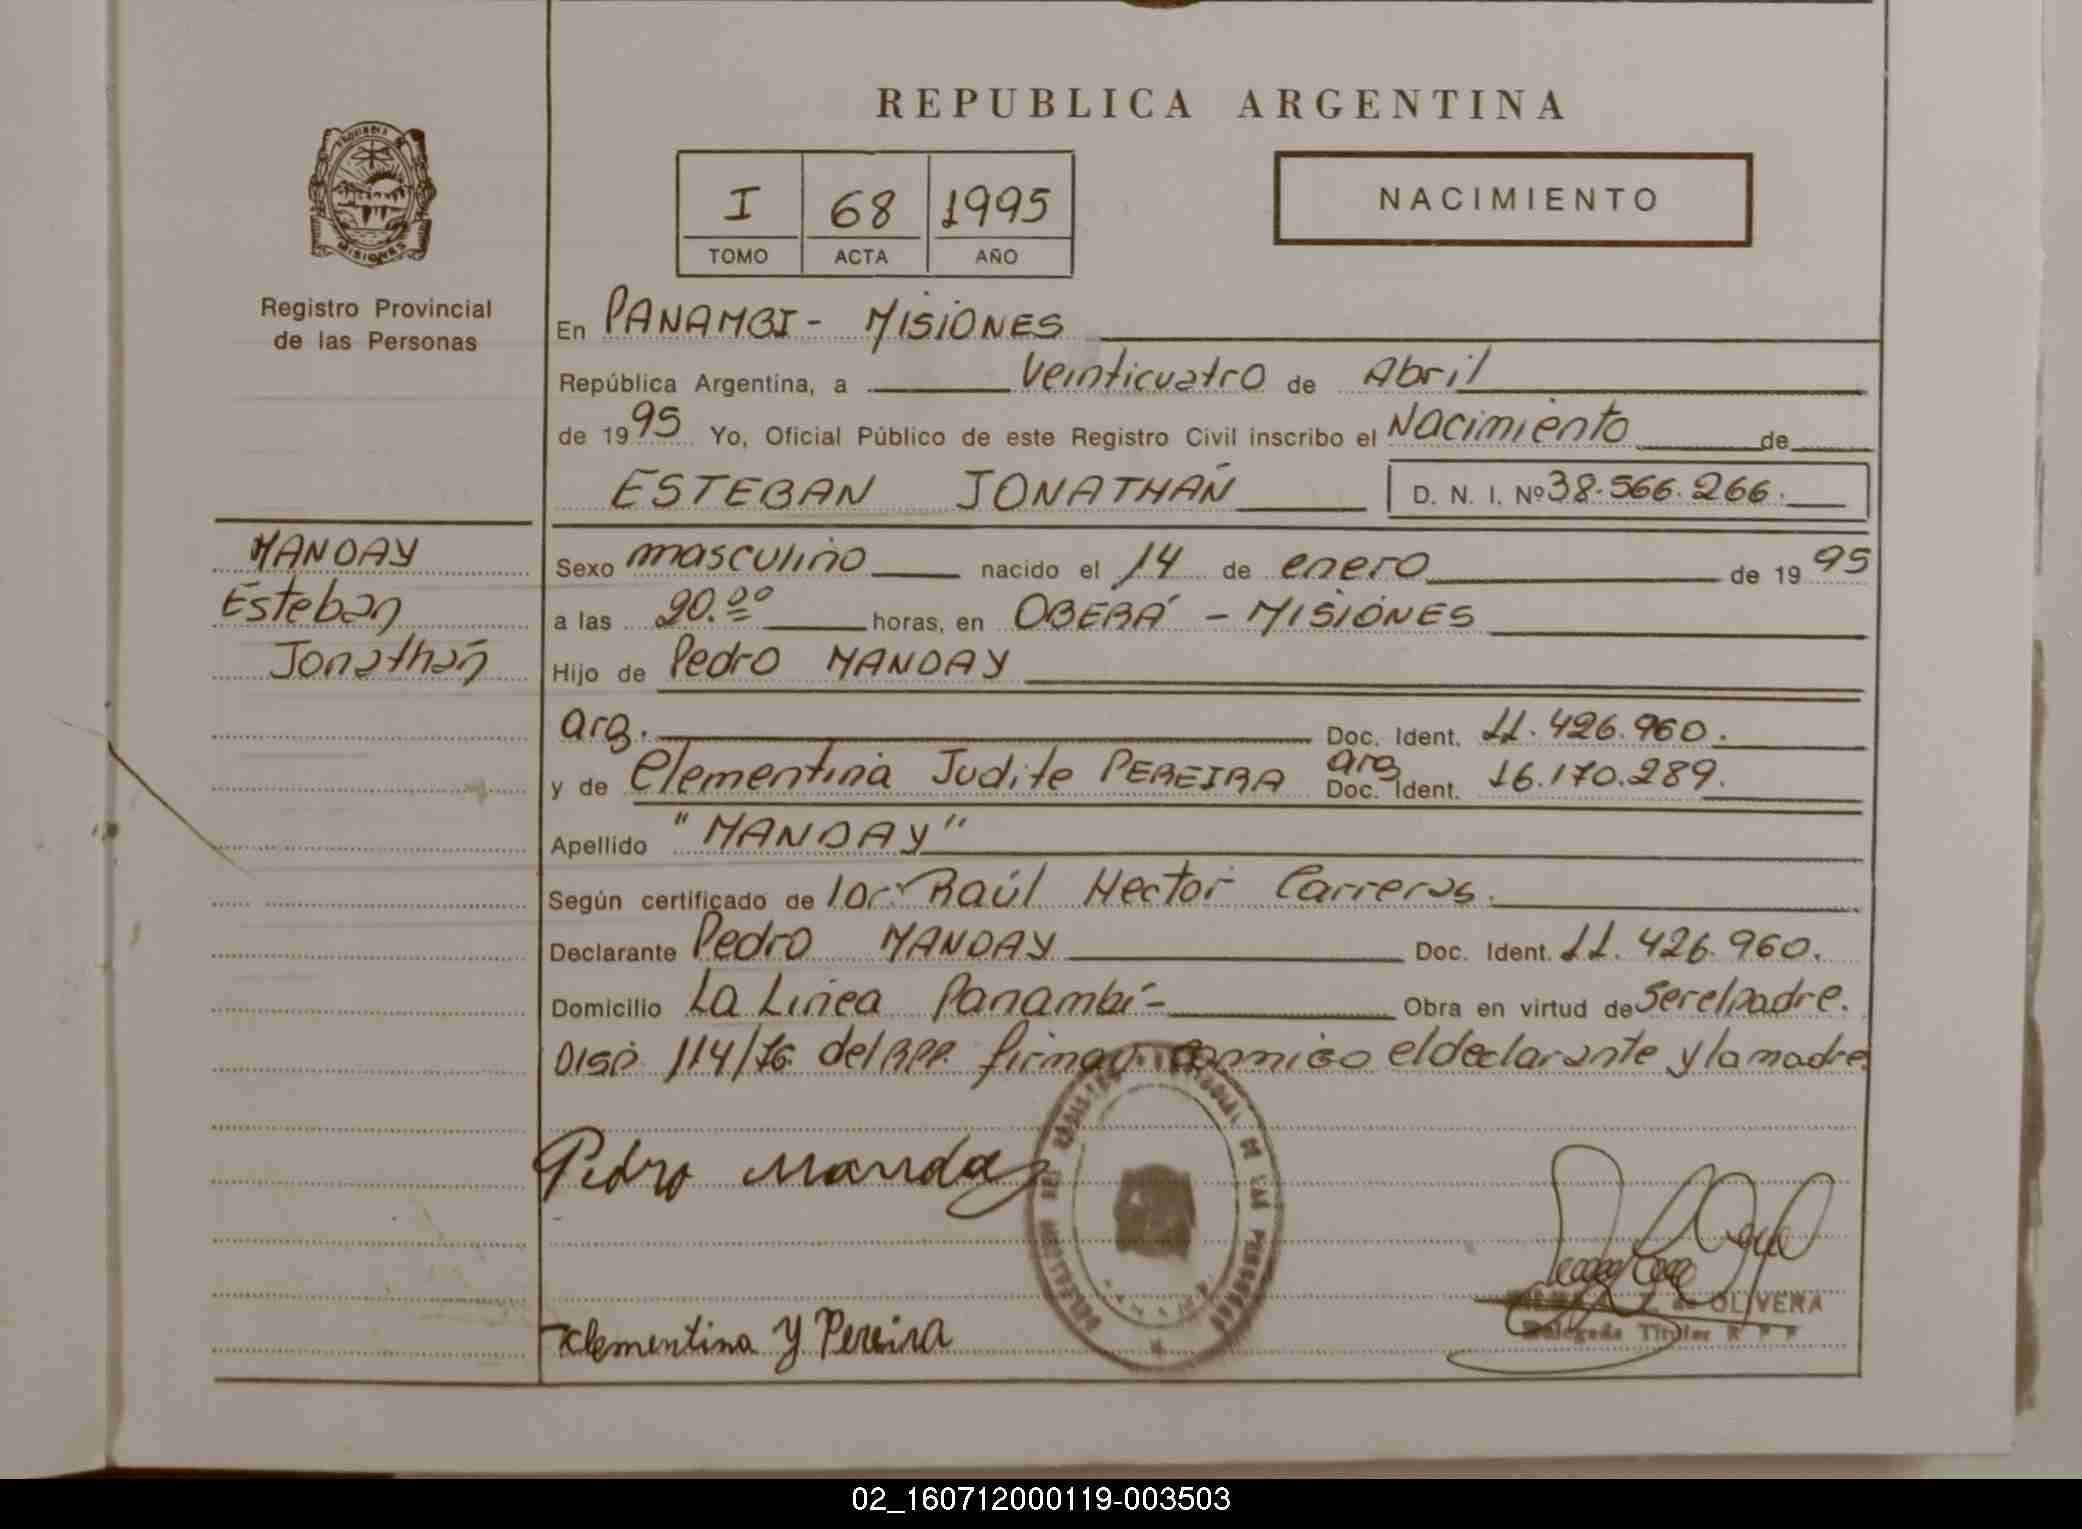 REPUBLICA ARGENTINA
PROVINCIA DE
MISIONES
Registro Provincial
de las Personas
I 68 1995
TOMO ACTA AÑO
NACIMIENTO
En PANAMBI - MISIONES
República Argentina, a veinticuatro de Abril
de 1995 Yo, Oficial Público de este Registro Civil inscribo el Nacimiento de
ESTEBAN JONATHAN D. N. I. Nº 38.566.266.
MANDAY
Esteban
Jonathan
Sexo masculino nacido el 14 de enero de 1995
a las 20.00 horas, en OBERÁ - MISIONES
Hijo de Pedro MANDAY
arg. Doc. Ident. 11.426.960.
y de Clementina Judite PEREIRA arg Doc. Ident. 16.170.289.
Apellido "MANDAY"
Según certificado de Raúl Hector Carreras.
Declarante Pedro MANDAY Doc. Ident. 11.426.960.
Domicilio La Linea Panambí- Obra en virtud de ser el padre.
DISP. 114/76 del RPP. firman conmigo el declarante y la madre
Pedro Manday
DE LAS PERSONAS
Clementina Y Pereira
de OLIVERA
Delegada Titular R P P
02_160712000119-003503